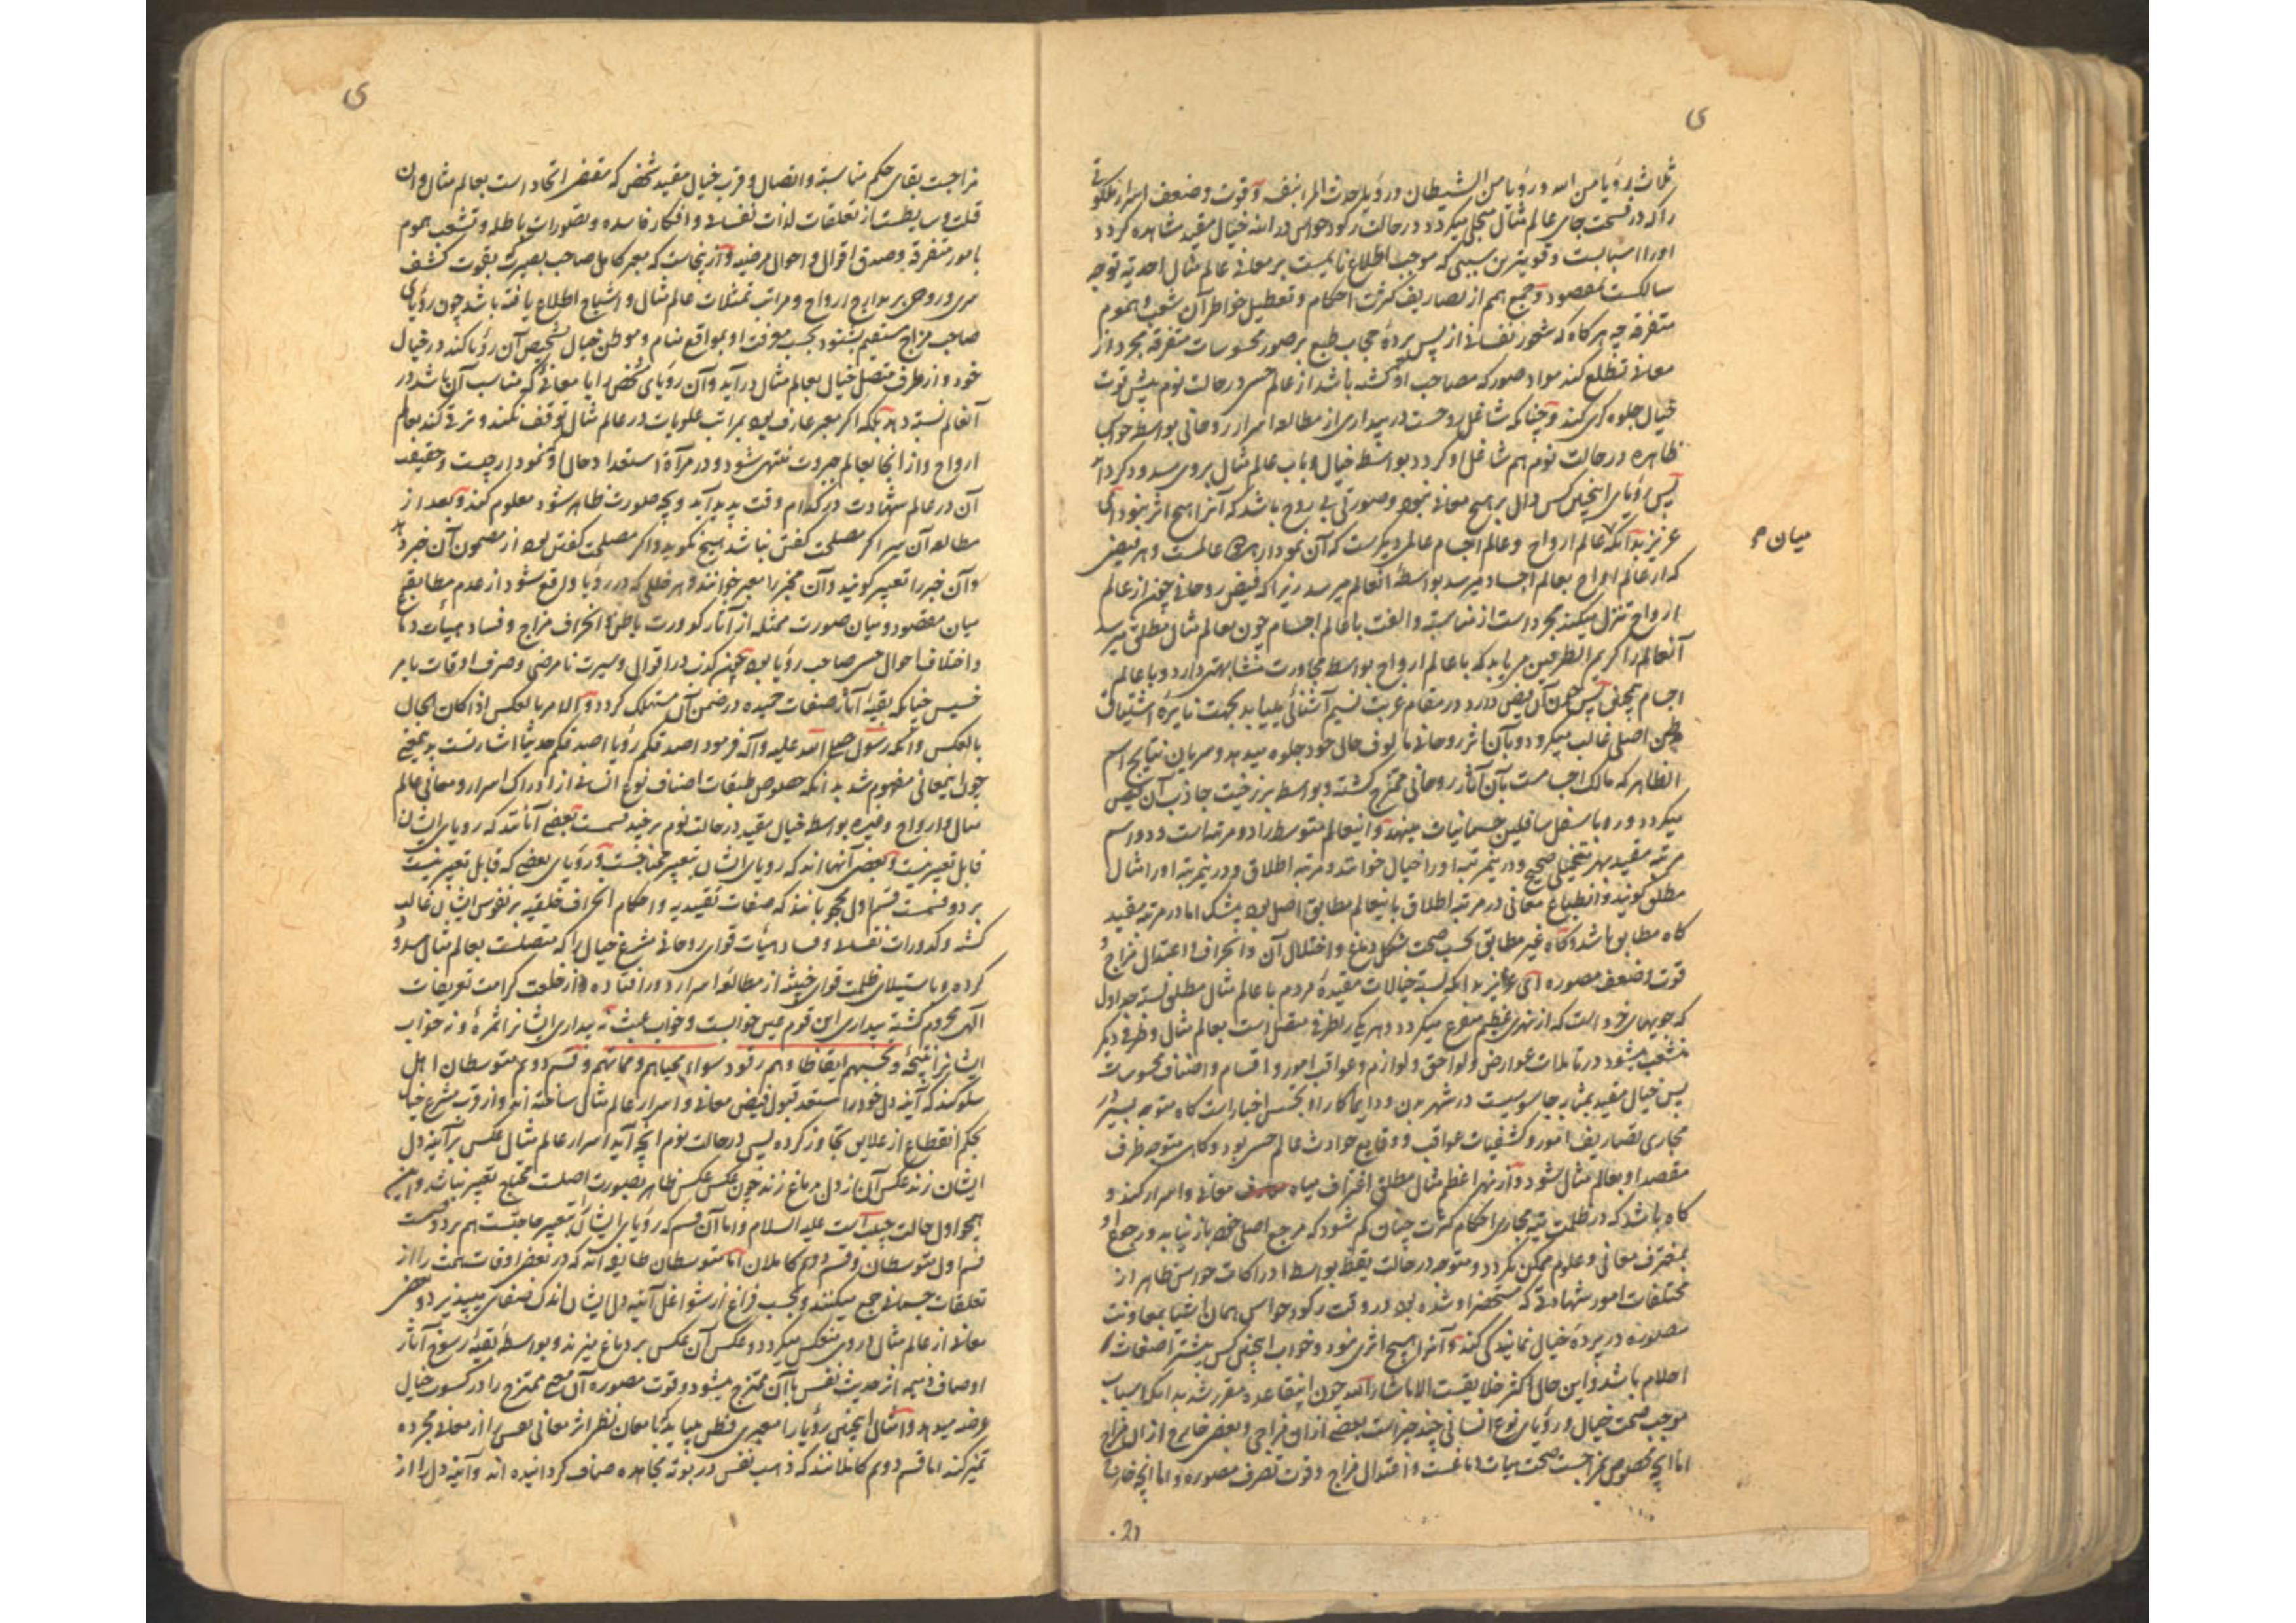 ثلاث رؤیا من الله و رؤیا من الشیطان و رؤیا حدث المرء نفسه و قوت و ضعف اسرار ملکوتی
را که در تحت جای عالم مثال متجلی میگردد در حالت رکود حواس در آینه خیال مقید مشاهده کردد
او را اسبابست و قویترین سببی که موجب اطلاع نایمست بر معانی عالم مثال احدیة توجه
سالکست بمقصود و جمع همم از تصاریف کثرت احکام و تعطیل خواطر آن شعب هموم
متفرقه چه هر کاه که شعور نفسانی از پس پردۀ حجاب طبع بر صور محسوسات متفرقه مجرد از
معانی تطلع کند مواد صور که مصاحب او کشته باشد از عالم حس در حالت نوم پیش قوت
خیال جلوه کری کند و چنانکه شاغل روحست در بیداری از مطالعه اسرار روحانی بواسطه حواس
ظاهره در حالت نوم هم شاغل او کردد بواسطه خیال و باب عالم مثال بروی مسدود کرداند
پس رؤیای اینچنین کس دال بر هیچ معانی نبود و صورتی بی روح باشد که آنرا هیچ اثر نبود ای
عزیز بدانکه عالم ارواح و عالم اجسام عالمی دیکرست که آن نمودار هر دو عالمست و هر فیضی
میان م
که از عالم ارواح بعالم اجساد میرسد بواسطۀ آنعالم میرسد زیرا که فیض روحانی چون از عالم
ارواح تنزل میکند مجرد است از مناسبة و الفت با عالم اجسام چون بعالم مثال مطلق میرسد
آنعالم را کریم الطرفین می یابد که با عالم ارواح بواسطه مجاورت متشابهتی دارد و با عالم
اجسام همچنین پس چون آن فیض در مقام غربت نسیم آشنائی بیابد بجهت نایرۀ اشتیاق
وطن اصلی غالب میکردد و بآن اثر روحانی مالوف حالی خود جلوه میدهد و سریان نتایج اسم
الظاهر که مالک اجسامست بآن آثار روحانی ممتزج کشته و بواسطه برزخیت جاذب آن فیض
میکردد و رو باسفل سافلین جسمانیات مینهد و اینعالم متوسط را دو مرتبه است و دو اسم
مرتبه مقید بهر تخیلی صحیح و درینمرتبه او را خیال خوانند و مرتبه اطلاق و درینمرتبه او را مثال
مطلق کویند و انطباع معانی در مرتبه اطلاق باینعالم مطابق اصل بود بیشک اما در مرتبه مقید
کاه مطابق باشد و کاه غیر مطابق بحسب صحت شکل دماغ و اختلال آن و انحراف و اعتدال مزاج و
قوت و ضعف مصوره ای عزیز بدانکه نسبة خیالات مقیدۀ مردم با عالم مثال مطلق نسبة جداول
که جویهای خرد است که از نهری عظیم متفرع میکردد و هر یکی را طرفی متصل است بعالم مثال و طرفی دیکر
منشعب میشود در قابلات عوارض و لواحق و لوازم و عواقب امور و اقسام و اصناف محسوسات
پس خیال مقید بمثابه جاسوسیست در شهر بدن و دایما کار او تجسس اخبار است کاه متوجه بسیر در
مجاری تصاریف امور و کشفیات عواقب و وقایع حوادث عالم حس بود و کاهی متوجه طرف
مقصد او بعالم مثال شود و از نهر اعظم مثال مطلق اغتراف میاه معانی و اسرار کند و
کاه باشد که در ظلمت تیه مجاری احکام کثرت چنان کم شود که مرجع اصلی خود باز نیابد و رجوع او
بمغترف معانی و علوم ممکن نکردد و متوجه در حالت یقظه بواسطه ادراکات حواس ظاهر از
مختلفات امور شهادتی که مستحضر او شده بود در وقت رکود حواس همان اشیا بمعاونت
مصوره در پردۀ خیال نمایندکی کند و آنرا هیچ اثری نبود و خواب اینچنین کس بیشتر اضغاث
احلام باشد و این حال اکثر خلایقست الا ما شاء الله چون اینقاعده مقرر شد بدانکه اسباب
موجب صحت خیال و رؤیای نوع انسانی چند چیز است بعضی از ان مزاجی و بعضی خارج از ان مزاج
اما آنچه مخصوص بمزاجست صحت هیات دماغست و اعتدال مزاج و قوت تصرف مصوره و اما آنچه خارج
مزاجست بقای حکم مناسبة و اتصال و قرب خیال مقید شخص که مقتضی اتحاد است بعالم مثال و ان
قلت وسایطست از تعلقات لذات نفسانی و افکار فاسده و تصورات باطله و تشعب هموم
بامور متفرقه و صدق اقوال و احوال مرضیه و از ینجاست که معبر کامل صاحب بصیرت بقوت کشف
سری و روحی بر مدارج ارواح و مراتب تمثلات عالم مثال و اشباح اطلاع یافته باشد چون رؤیای
صاحب مزاج مستقیم بشنود بحسب معرفت او بمواقع منام و موطن خیال تشخیص آن رؤیا کند در خیال
خود و از طرف متصل خیال بعالم مثال در آید و آن رؤیای شخص را با معانی که مناسب آن باشد در
آنعالم نسبة دهد بلکه اکر معبر عارف بود بمراتب علویات در عالم مثال توقف نکند و ترقی کند بعالم
ارواح و از انجا بعالم جبروت منتهی شود و در مرآة استعداد حال او نمودار چیست و حقیقت
آن در عالم شهادت در کدام وقت پدید آید و بچه صورت ظاهر شود معلوم کند و بعد از
مطالعه آن سر اکر مصلحت کفتن نباشد هیچ نکوید و اکر مصلحت کفتن بود از مضمون آن خبر دهد
و آن خبر را تعبیر کویند و آن مخبر را معبر خوانند و هر خللی که در رؤیا واقع شود از عدم مطابقة
میان مقصود و میان صورت ممثله از آثار کدورت باطن و انحراف مزاج و فساد هیأت دماغ
و اختلاف احوال حسی صاحب رؤیا بود همچون کذب در اقوال و سیرت نامرضی و صرف اوقات بامر
خسیس چنانکه بقیۀ آثار صفات حمیده در ضمن آن مستهلک کردد و الامر بالعکس اذا کان الحال
بالعکس و آنکه رسول صلی الله علیه و آله فرمود اصدقکم رؤیا اصدقکم حدیثا اشارتست بدینمعنی
چون اینمعانی مفهوم شد بدانکه خصوص طبقات اصناف نوع انسانی از ادراک اسرار و معانی عالم
مثال و ارواح و غیره بواسطه خیال مقید در حالت نوم بر چند قسمست بعضی آنانند که رویای ایشان
قابل تعبیر نیست و بعضی آنها اند که رویای ایشان بتعبیر محتاجست و رؤیای بعضی که قابل تعبیر نیست
بر دو قسمست قسم اول محجوبانند که صفات تقییدیه و احکام انحراف خلقیه بر نفوس ایشان غالب
کشته و کدورات نفسانی و فساد هیأت قوای روحانی مشرع خیال را که متصلست بعالم مثال مسدود
کرده و باستیلای ظلمت قوای خبیثه از مطالعه اسرار دور افتاده و از خلعت کرامت تعریفات
الهی محروم کشته بیداری این قوم عین خوابست و خواب عبث نه بیداری ایشانرا ثمرۀ و نه خواب
ایشانرا نتیجۀ و تحسبهم ایقاظا و هم رقود سواء محیاهم و مماتهم و قسم دویم متوسطان اهل
سلوکند که آینه دل خود را مستعد قبول فیض معانی و اسرار عالم مثال ساخته اند و از قرب مشرع خیال
بحکم انقطاع از علایق تجاوز کرده پس در حالت نوم آنچه آید اسرار عالم مثال عکس بر آینه دل
ایشان زند عکس آن از دل بر دماغ زند چون عکس عکس ظاهر بصورت اصلست محتاج تعبیر نباشد و این
همچو اول حالت حبیب است علیه السلام و اما آن قسم که رؤیای ایشان بتعبیر حاجتست هم بر دو قسمست
قسم اول متوسطان و قسم دویم کاملان اما متوسطان طایفه اند که در بعضی اوقات همت را از
تعلقات جسمانی جمع میکنند و بحسب فراغ از شواغل آئینه دل ایشان اندک صفائی میپذیرد و بعضی
معانی از عالم مثال در وی منعکس میکردد و عکس آن عکس بر دماغ میزند و بواسطۀ بقیۀ رسوخ آثار
اوصاف ذمیمه از حدیث نفس با آن ممتزج میشود و قوت مصوره آن ممتزج را در کسوت خیال
عرضه میدهد و امثال اینچنین رؤیا را معبری فطن میباید تا بامعان نظر اثر معانی نفسی را از معانی مجرده
تمیز کند اما قسم دویم کاملانند که ذهب نفس در بوته مجاهده صاف کردانیده اند و آئینه دل را از